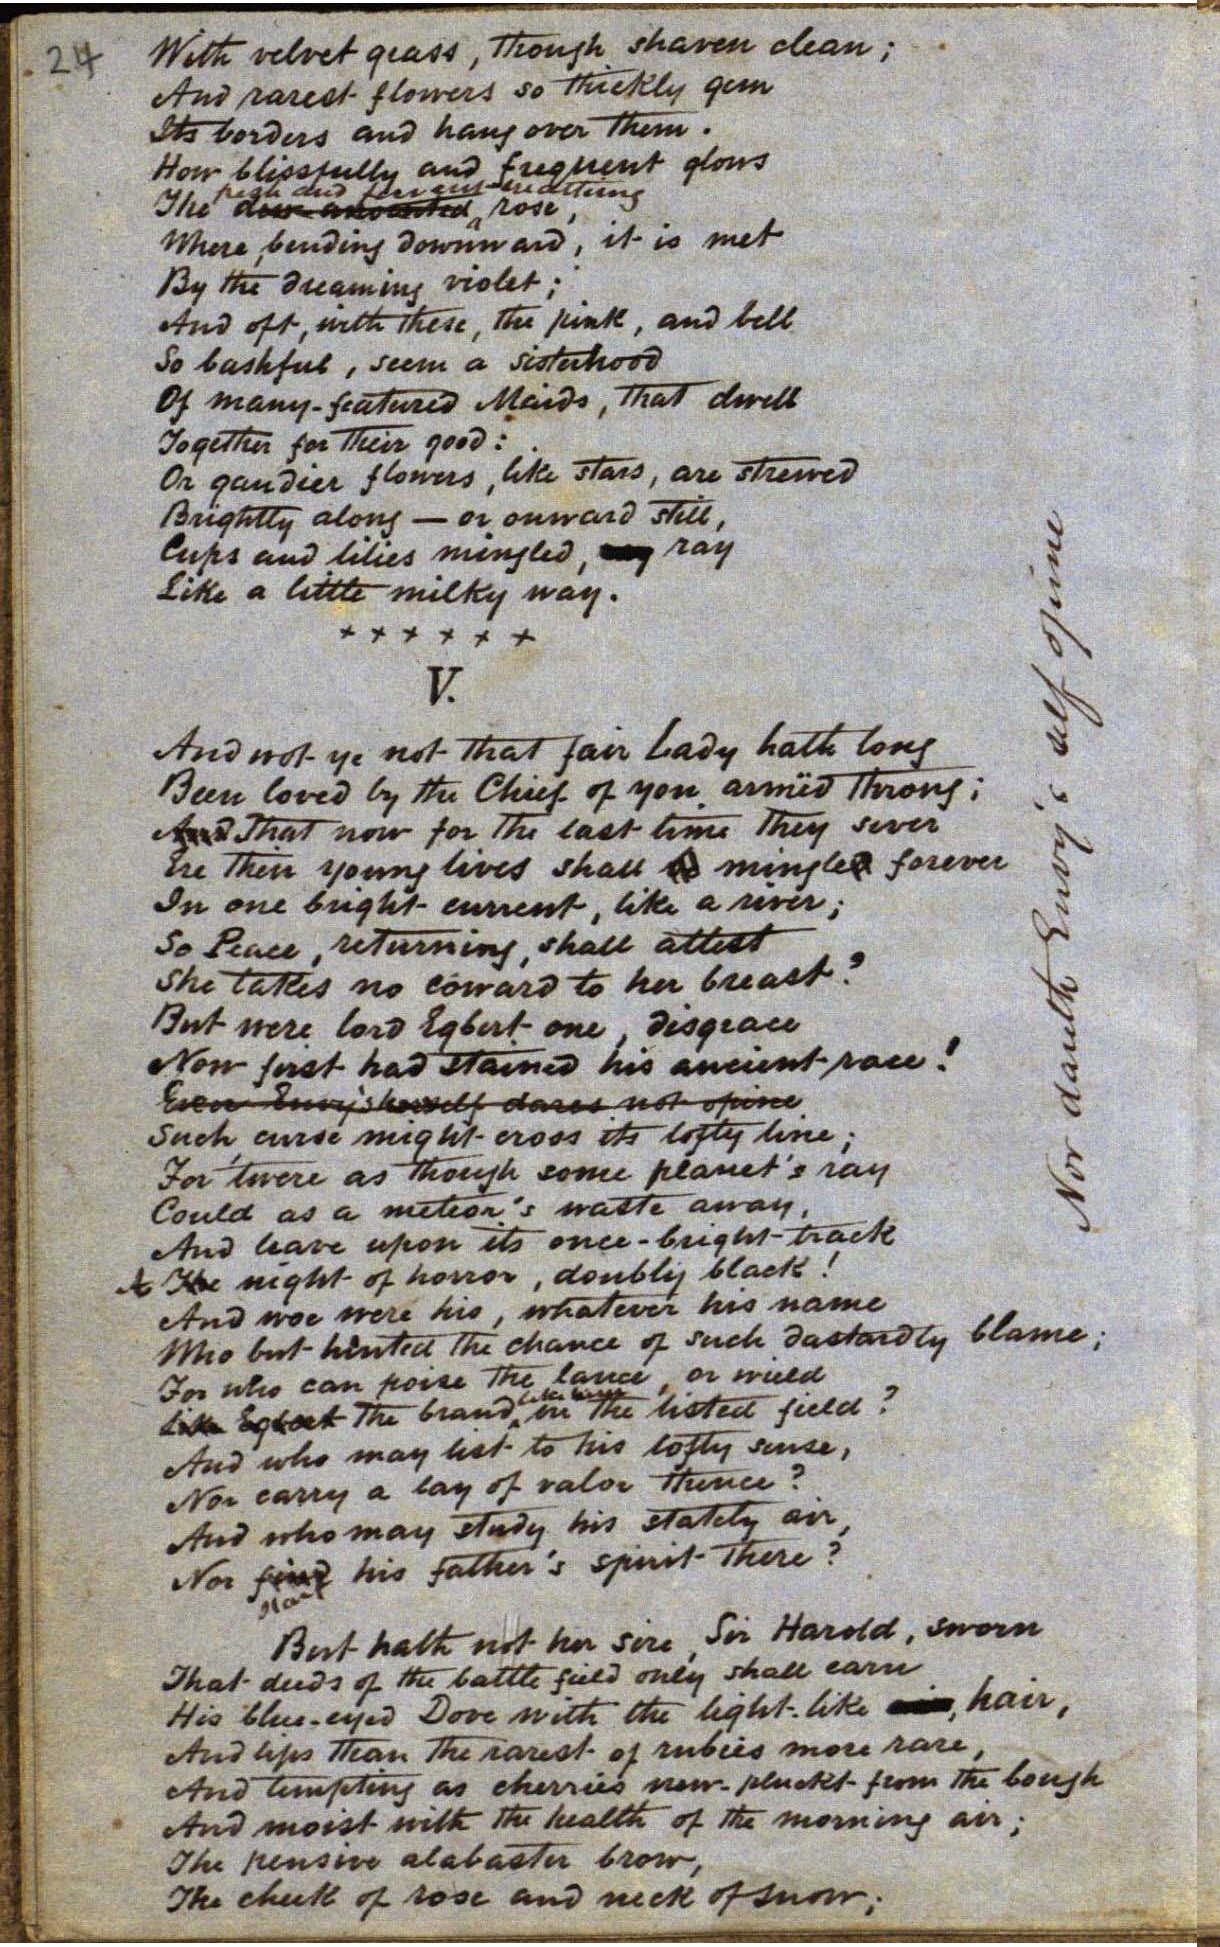 24
With velvet grass, though shaven clean;
And rarest flowers so thickly gem
Its borders and hang over them.
How blissfully and frequent glows
and fervent-breathing
The dew-anointed rose,
Where, bending downward, it is met
By the dreaming violet;
And oft, with these, the pink, and bell
So bashful, seem a sisterhood
Of many-featured Maids, that dwell
Together for their good:
Or gaudier flowers, like stars, are strewed
Brightly along — or onward still,
Cups and lilies mingled, ray
Like a little milky way.
+ + + + + +
V.
And wot ye not that fair Lady hath long
Been loved by the Chief of yon armëd throng;
And That now for the last time they sever
Ere their young lives shall mingle forever
In one bright current, like a river;
So Peace, returning, shall attest
She takes no coward to her breast?
But were lord Egbert one, disgrace
Now first had stained his ancient race!
Even Envy's herself dares not opine
Such curse might cross its lofty line;
For 'twere as though some planet's ray
Could as a meteor's waste away,
And leave upon its once-bright track
A The night of horror, doubly black!
And woe were his, whatever his name
Who but hinted the chance of such dastardly blame;
For who can poise the lance, or wield
like him
Like Egbert the brand, in the listed field?
And who may list to his lofty sense,
Nor carry a lay of valor thence?
And who may study his stately air,
Nor find his father's spirit there?
But hath not her sire, Sir Harold, sworn
That deeds of the battle field only shall earn
His blue-eyed Dove with the light-like hair,
And lips than the rarest of rubies more rare,
And tempting as cherries new-pluckt from the bough
And moist with the health of the morning air;
The pensive alabaster brow,
The cheek of rose and neck of snow;
Nor dareth Envy's self opine